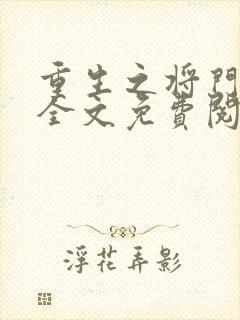 重生之将門
全文免費閱
浮花弄影